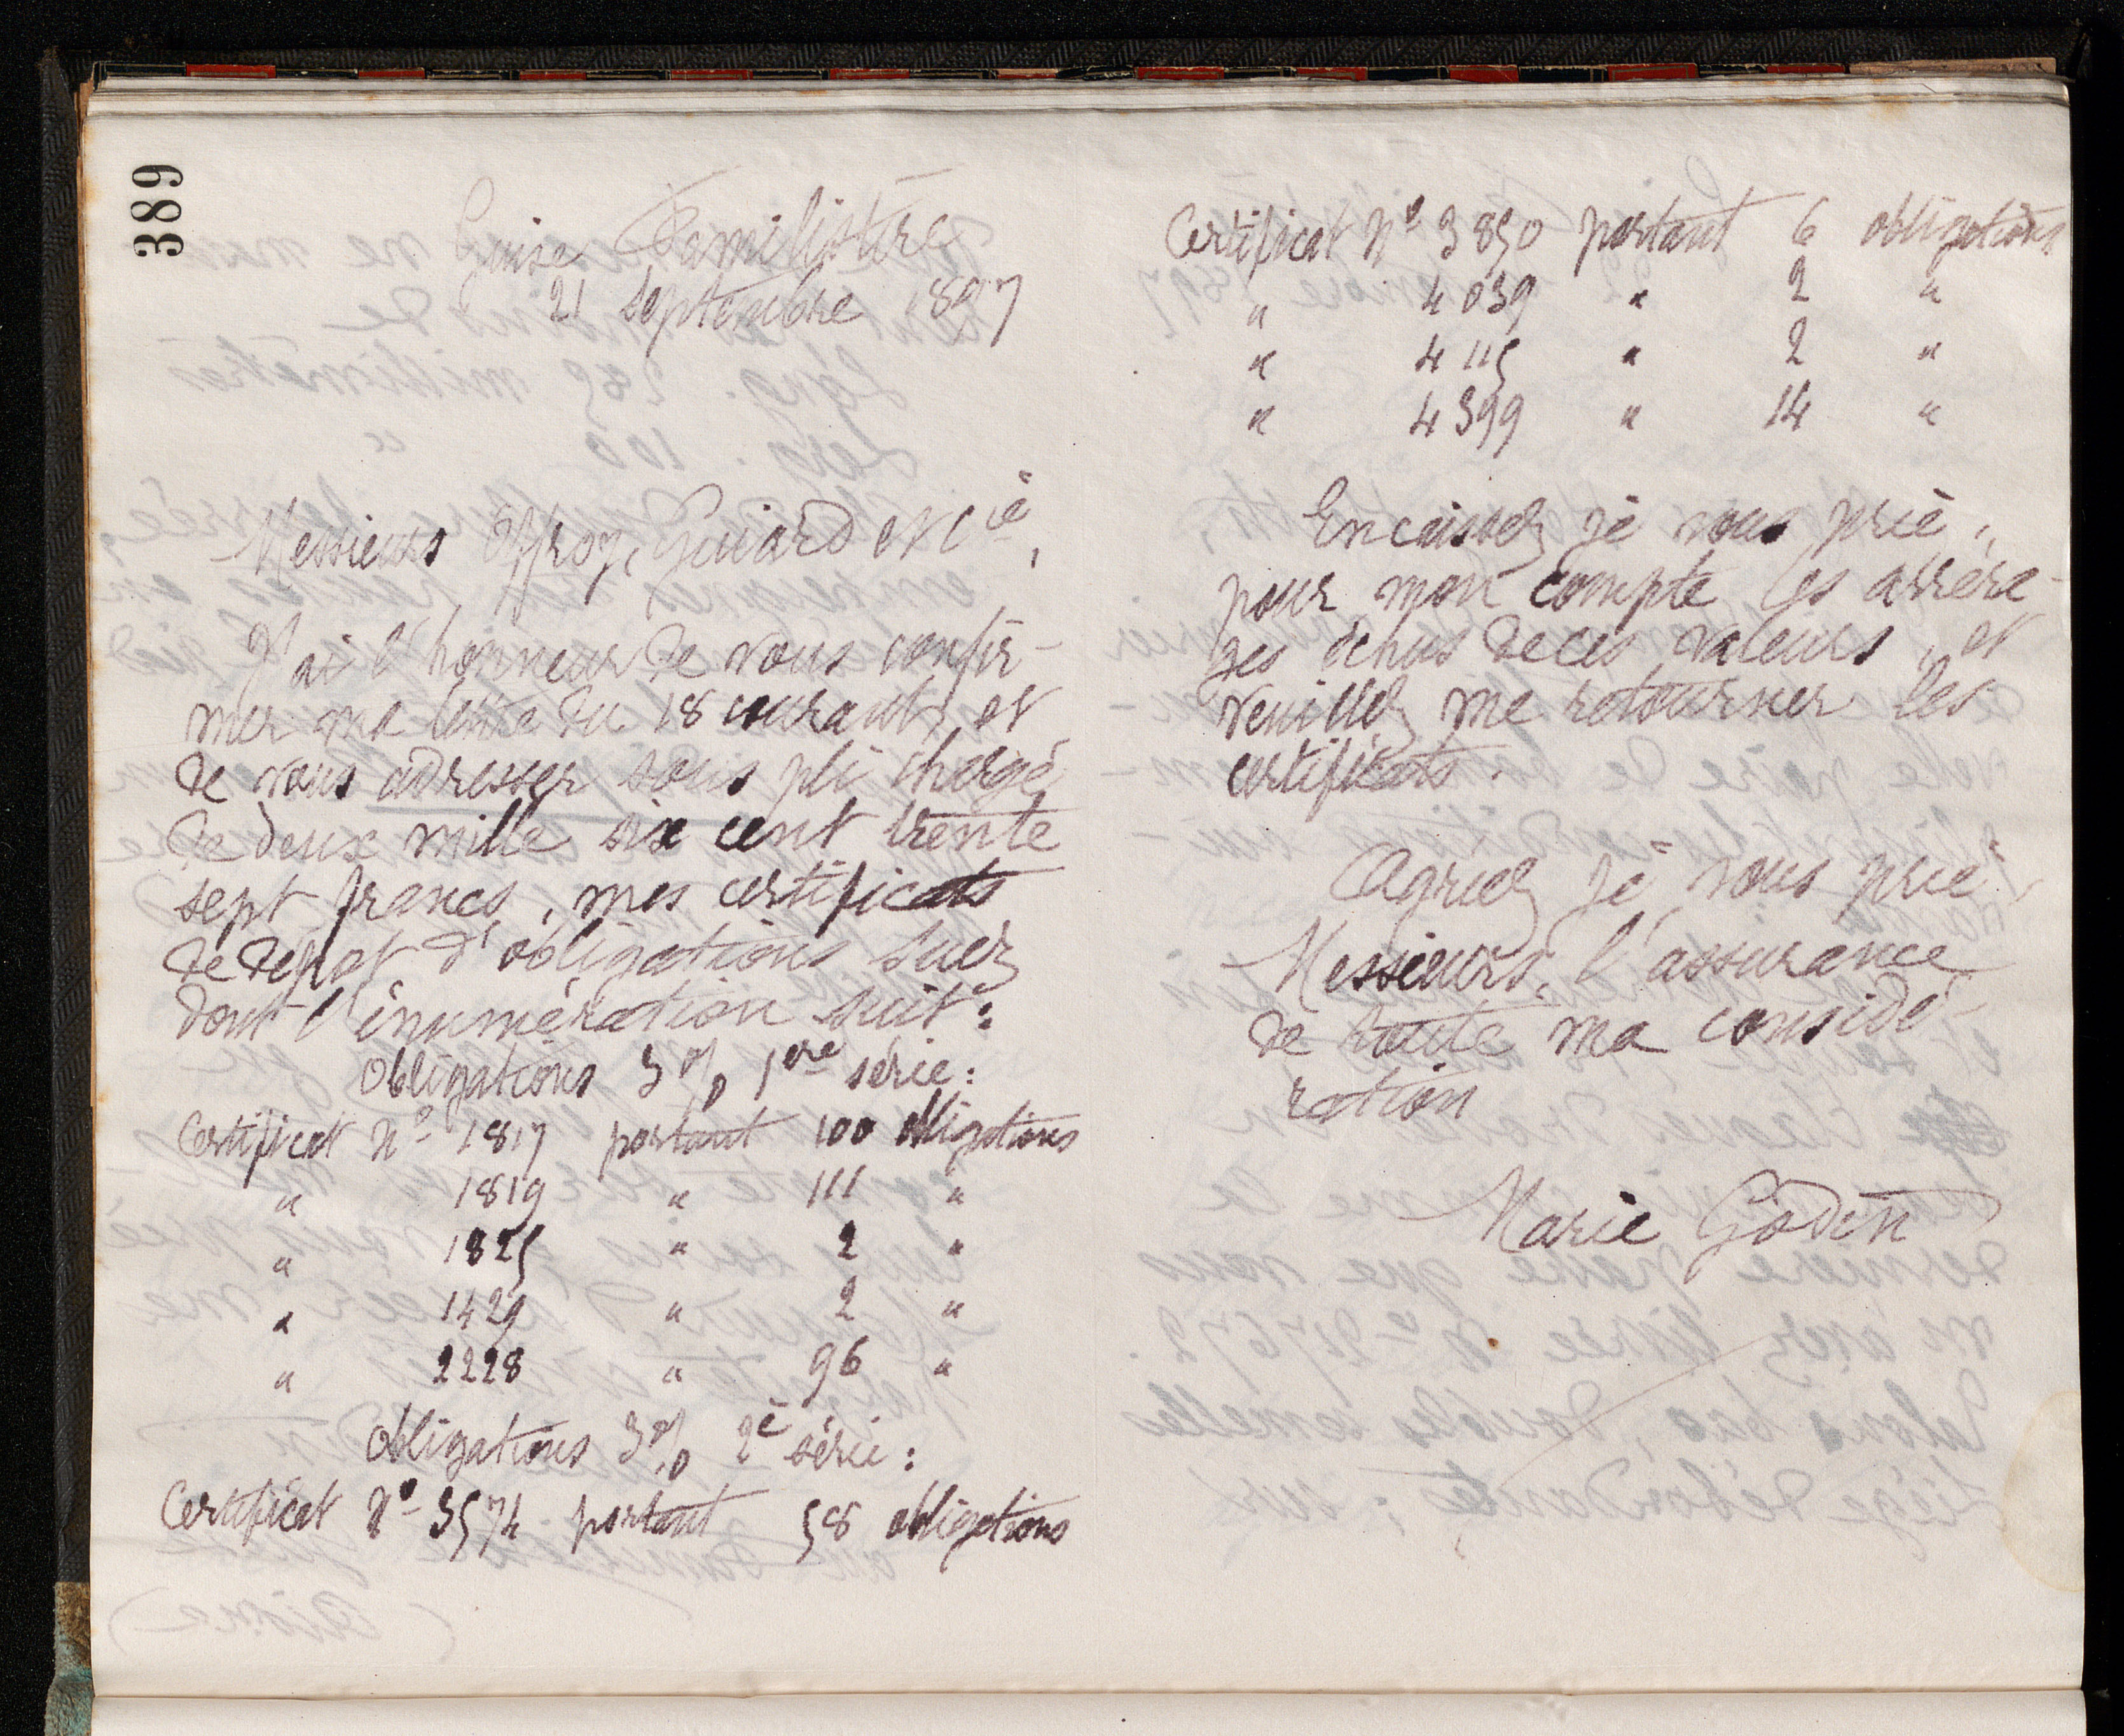 389
Guise Familistère
21 septembre 1897
Messieurs Offroy, Guiard et Cie,
J'ai l'honneur de vous confir-
mer ma lettre du 18 courant, et
de vous adresser sous pli chargé
de deux mille six cent trente
sept francs, mes certificats
de dépôt d'obligations Suez
dont l'énumération suit :
Obligations 3 % 1ère série :
Certificat No 1817 portant 100 obligations
" 1819 " 111 "
" 1825 " 2 "
" 1429 " 2 "
" 2228 " 96 "
Obligations 3 % 2e série :
Certificat No 3574 portant 58 obligations
Certificat No 3850 portant 6 obligations
" 4039 " 2 "
" 4115 " 2 "
" 4399 " 14 "
Encaissez je vous prie,
pour mon compte les arréra-
ges échus de ces valeurs, et
veuillez me retourner les
certificats.
Agréez je vous prie,
Messieurs, l'assurance
de toute ma considé-
ration
Marie Godin